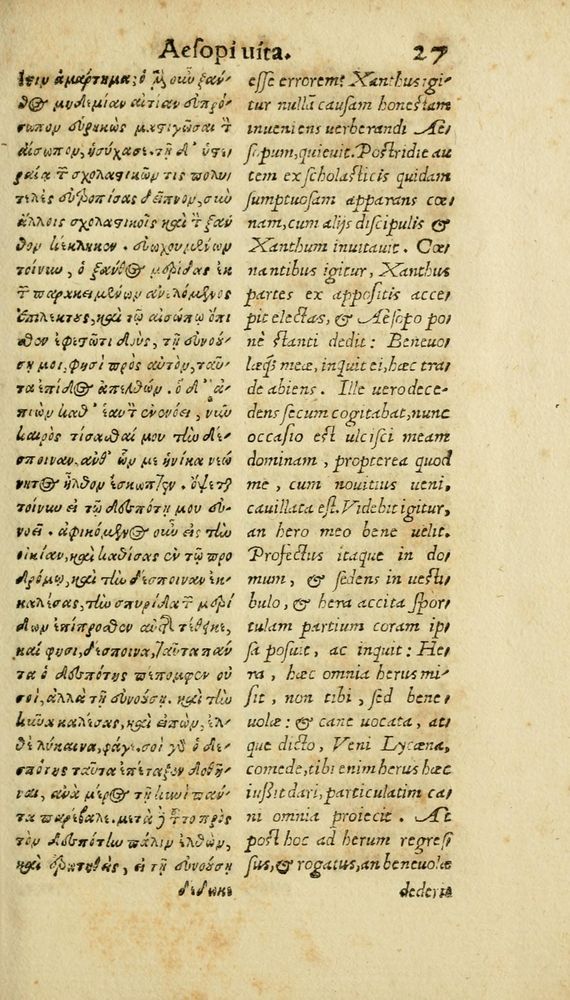 Aesopi uita. 27
ἔστιν ἁμάρτημα; ὁ μὲν οὖν ξάν-
θος μηδεμίαν αἰτίαν εὐπρό-
σωπον εὑρηκὼς μαστιγῶσαι τὸν
αἴσωπον, ἡσύχασε. τῇ δ' ὑστε-
ραίᾳ τῶν σχολαστικῶν τις πολυ-
τελὲς εὐτρεπίσας δεῖπνον, σὺν
ἄλλοις σχολαστικοῖς καὶ τὸν ξάν-
θον κέκληκεν. εὐωχουμένων
τοίνυν, ὁ ξάνθος μερίδας ἐκ
τῶν παρακειμένων ἀνελόμενος
ἐπιλέκτους, καὶ τῷ αἰσώπῳ ὄπι-
σθεν ἐφεστῶτι δοὺς, τῇ εὐνοού-
σῃ μοι, φησὶ πρὸς αὐτὸν, ταῦ-
τα ἐπίδος ἀπελθών. ὁ δ' ἀ-
πιὼν καθ' ἑαυτὸν ἐνενόει, νῦν
καιρὸς τίσασθαί μου τὴν δέ-
σποιναν. ἀνθ' ὧν με ἡνίκα νεώ-
νητος ἦλθον ἔσκωπτεν. ὄψεται
τοίνυν εἰ τῷ δεσπότῃ μου εὐ-
νοεῖ. ἀφικόμενος οὖν εἰς τὴν
οἰκίαν, καὶ καθίσας ἐν τῷ προ-
δρόμῳ, καὶ τὴν δέσποιναν ἐκ-
καλέσας, τὴν σπυρίδα τῶν μερί-
δων ἐπίπροσθεν αὐτῆς τέθηκε,
καί φησι, δέσποινα, ταῦτα πάν-
τα ὁ δεσπότης πέπομφεν οὐ
σοὶ, ἀλλὰ τῇ εὐνούσῃ. καὶ τὴν
κύνα καλέσας, καὶ εἰπὼν, ἐλ-
θὲ λύκαινα, φάγε. σοὶ γὰρ ὁ δε-
σπότης ταῦτα ἐπέταξεν δοθῆ-
ναι, ἀνὰ μέρος τῇ κυνὶ πάν-
τα παρέβαλε. μετὰ δὲ τοῦτο πρὸς
τὸν δεσπότην πάλιν ἐλθὼν,
καὶ ἐρωτηθεὶς, εἰ τῇ εὐνούσῃ
δέδωκε
esse errorem? Xanthus igi-
tur nullã causam honestam
inueniens uerberandi Ae-
sopum, quieuit. Postridie au
tem ex scholasticis quidam
sumptuosam apparans cœ-
nam, cum alijs discipulis &
Xanthum inuitauit. Cœ-
nantibus igitur, Xanthus
partes ex appositis acce-
pit electas, & Aesopo po-
nè stanti dedit: Beneuo-
læq́; meæ, inquit ei, hæc tra-
de abiens. Ille uero dece-
dens secum cogitabat, nunc
occasio est ulcisci meam
dominam, propterea quod
me, cum nouitius ueni,
cauillata est. Videbit igitur,
an hero meo bene uelit.
Profectus itaque in do-
mum, & sedens in uesti-
bulo, & hera accita spor-
tulam partium coram ip-
sa posuit, ac inquit: He-
ra, hæc omnia herus mi-
sit, non tibi, sed bene-
uolæ: & cane uocata, at-
que dicto, Veni Lycæna,
comede, tibi enim herus hæc
iußit dari, particulatim ca-
ni omnia proiecit. At
post hoc ad herum regres-
sus, & rogatus, an beneuolæ
dederit